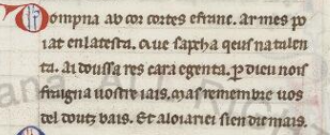 Dompna ab cor cortes efranc. Ar mes po
iat en latesta. Que sapcha qeus na talen
ta. Ai doussa res cara e genta. ꝑ dieu nois
fraigna uostre iais. mas remembre uos
del doutz bais. Et al oiarei sien die mais.